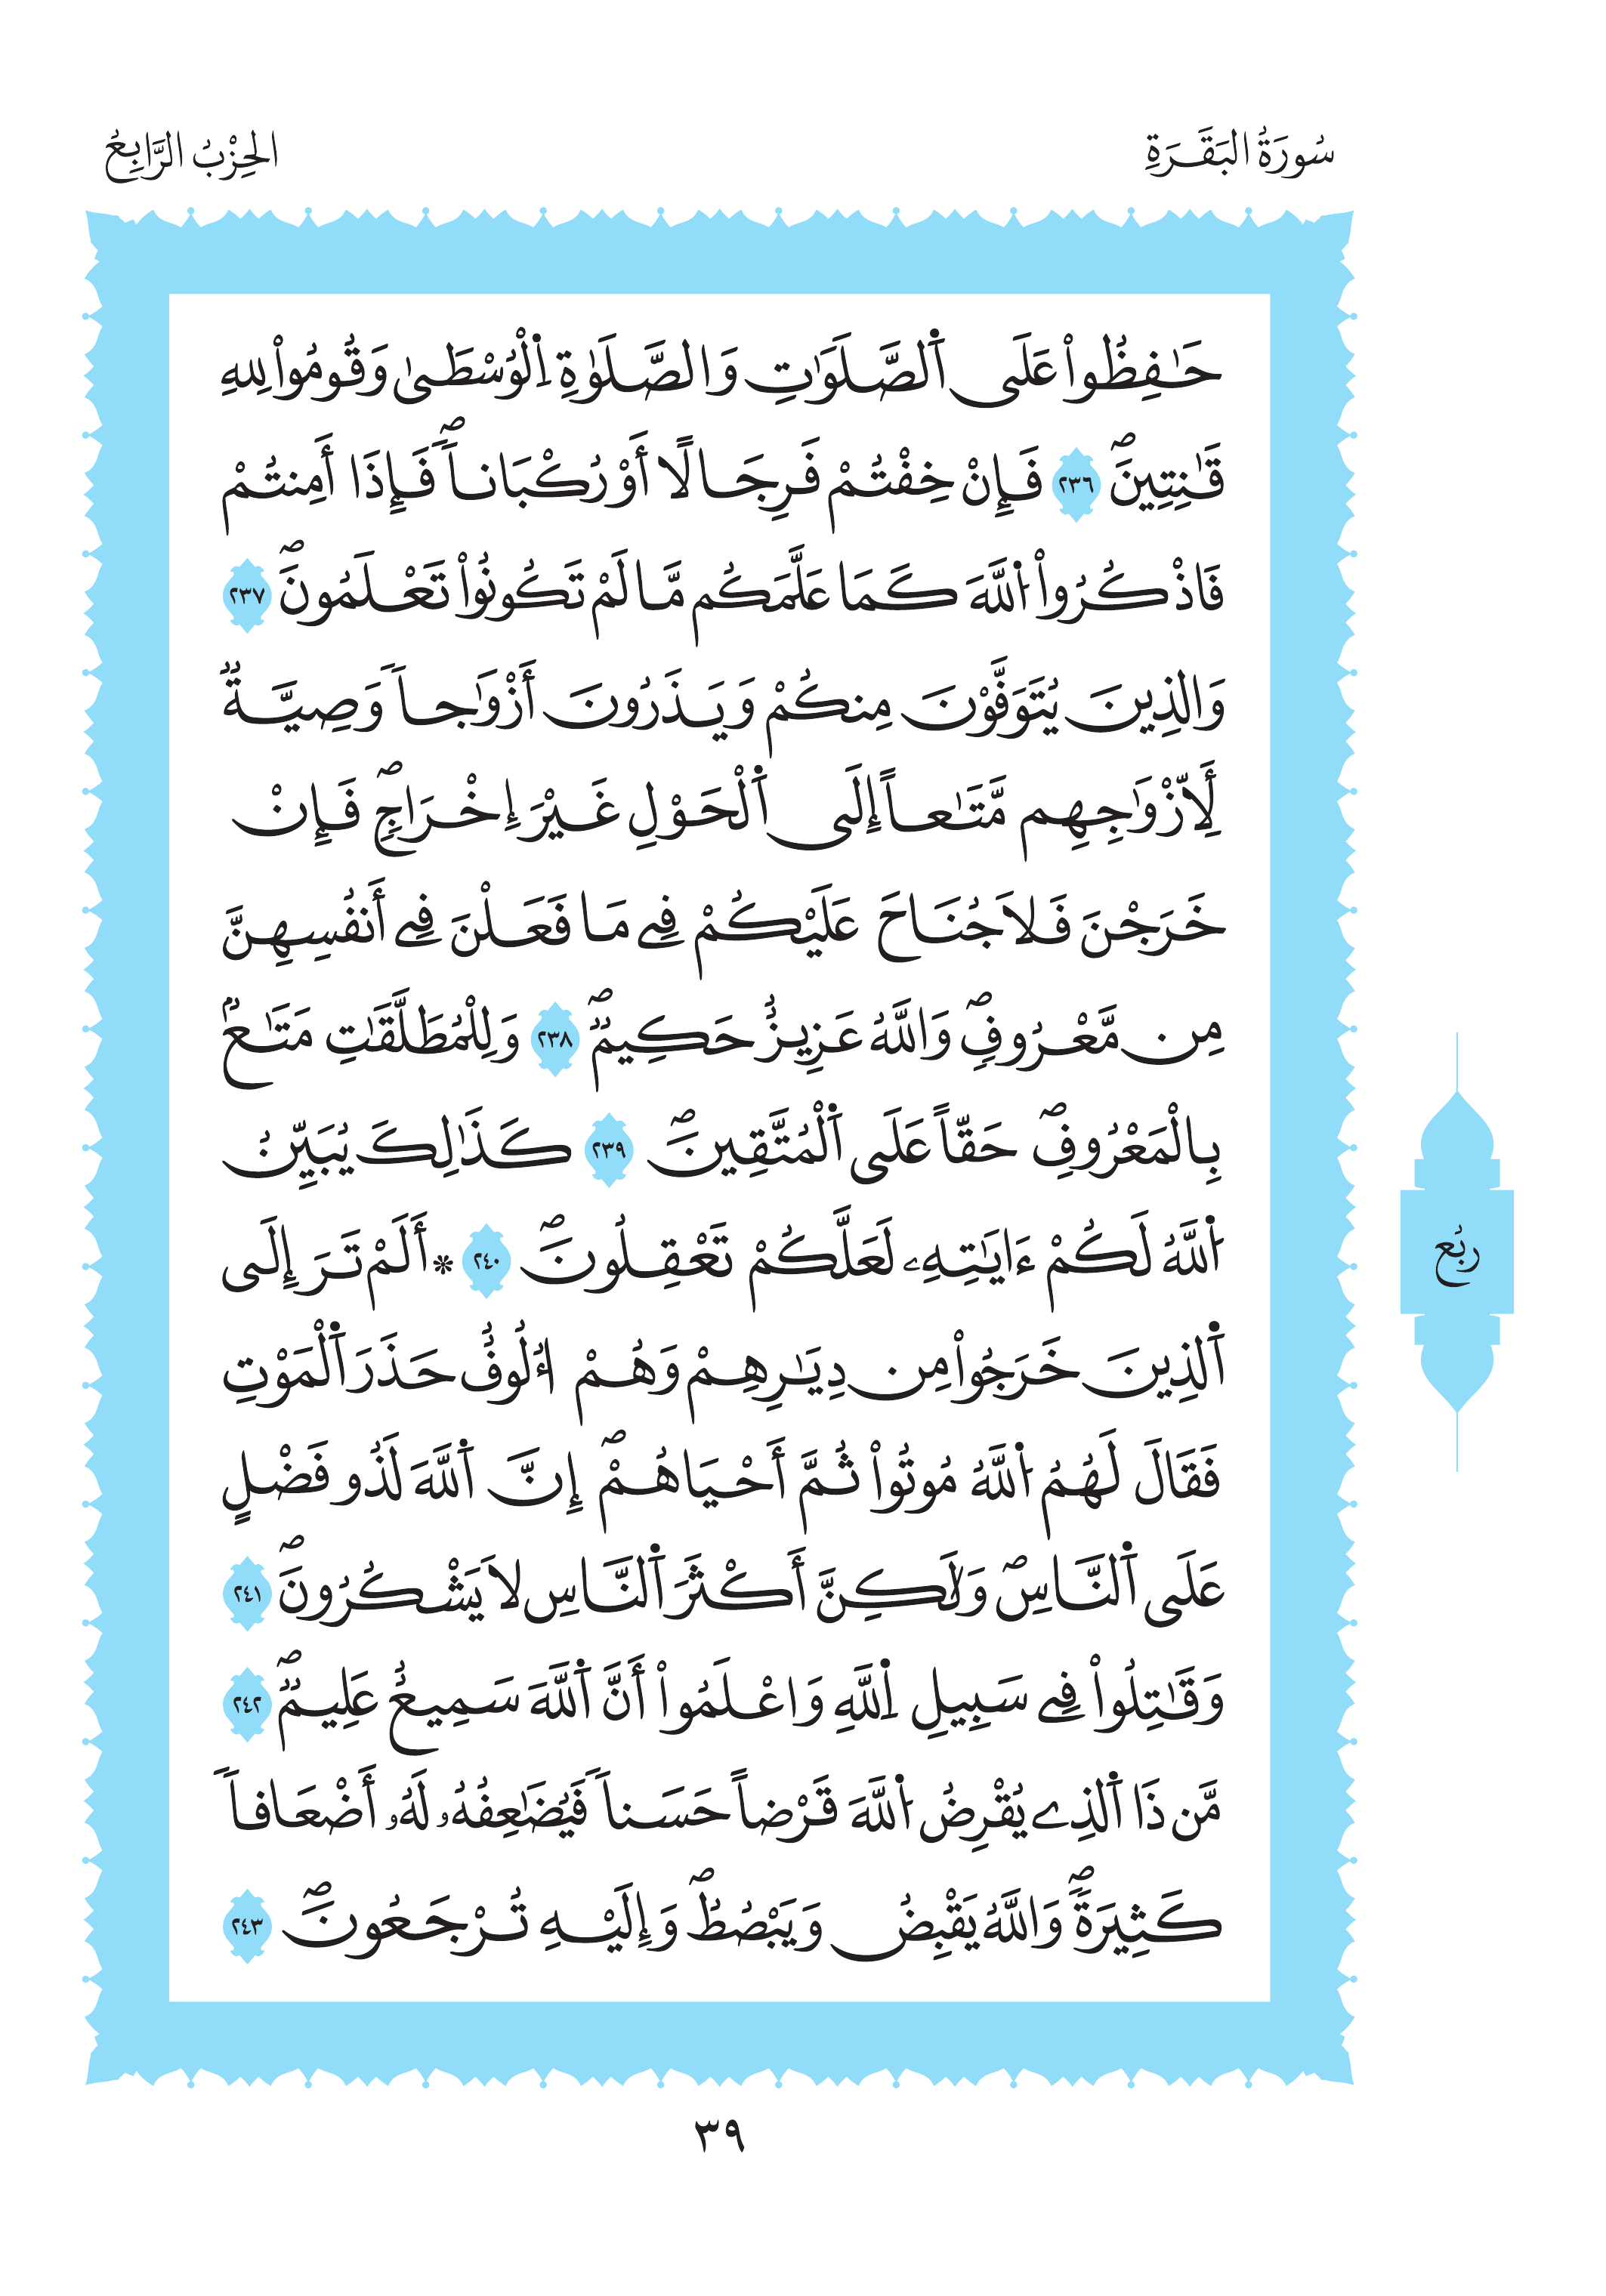 سُورَةُ البَقَرَةِ
الحِزْبُ الرَّابِعُ
حَٰفِظُواْ عَلَى اَ۬لصَّلَوَٰتِ وَالصَّلَوٰةِ اِ۬لْوُسْطَىٰ وَقُومُواْ لِلهِ
قَٰنِتِينَۖ ٢٣٦ فَإِنْ خِفْتُمْ فَرِجَالًا أَوْ رُكْبَاناٗۖ فَإِذَا أَمِنتُمْ
فَاذْكُرُواْ اُ۬للَّهَ كَمَا عَلَّمَكُم مَّا لَمْ تَكُونُواْ تَعْلَمُونَۖ ٢٣٧
وَالذِينَ يُتَوَفَّوْنَ مِنكُمْ وَيَذَرُونَ أَزْوَٰجاٗ وَصِيَّةٞ
لِّأَزْوَٰجِهِم مَّتَٰعاً إِلَى اَ۬لْحَوْلِ غَيْرَ إِخْرَاجٖۖ فَإِنْ
خَرَجْنَ فَلَا جُنَاحَ عَلَيْكُمْ فِے مَا فَعَلْنَ فِے أَنفُسِهِنَّ
مِن مَّعْرُوفٖۖ وَاللَّهُ عَزِيزٌ حَكِيمٞۖ ٢٣٨ وَلِلْمُطَلَّقَٰتِ مَتَٰعُۢ
بِالْمَعْرُوفِۖ حَقّاً عَلَى اَ۬لْمُتَّقِينَۖ ٢٣٩ كَذَٰلِكَ يُبَيِّنُ
اُ۬للَّهُ لَكُمْ ءَايَٰتِهِۦ لَعَلَّكُمْ تَعْقِلُونَۖ ٢٤٠ * أَلَمْ تَرَ إِلَى
اَ۬لذِينَ خَرَجُواْ مِن دِيَٰرِهِمْ وَهُمْ أُلُوفٌ حَذَرَ اَ۬لْمَوْتِ
فَقَالَ لَهُمُ اُ۬للَّهُ مُوتُواْ ثُمَّ أَحْيَاهُمْۖ إِنَّ اَ۬للَّهَ لَذُو فَضْلٍ
عَلَى اَ۬لنَّاسِۖ وَلَٰكِنَّ أَكْثَرَ اَ۬لنَّاسِ لَا يَشْكُرُونَۖ ٢٤١
وَقَٰتِلُواْ فِے سَبِيلِ اِ۬للَّهِ وَاعْلَمُواْ أَنَّ اَ۬للَّهَ سَمِيعٌ عَلِيمٞۖ ٢٤٢
مَّن ذَا اَ۬لذِے يُقْرِضُ اُ۬للَّهَ قَرْضاً حَسَناٗ فَيُضَٰعِفُهُۥ لَهُۥ أَضْعَافاٗ
كَثِيرَةٗۖ وَاللَّهُ يَقْبِضُ وَيَبْصُطُۖ وَإِلَيْهِ تُرْجَعُونَۖ ٢٤٣
ربُع
٣٩